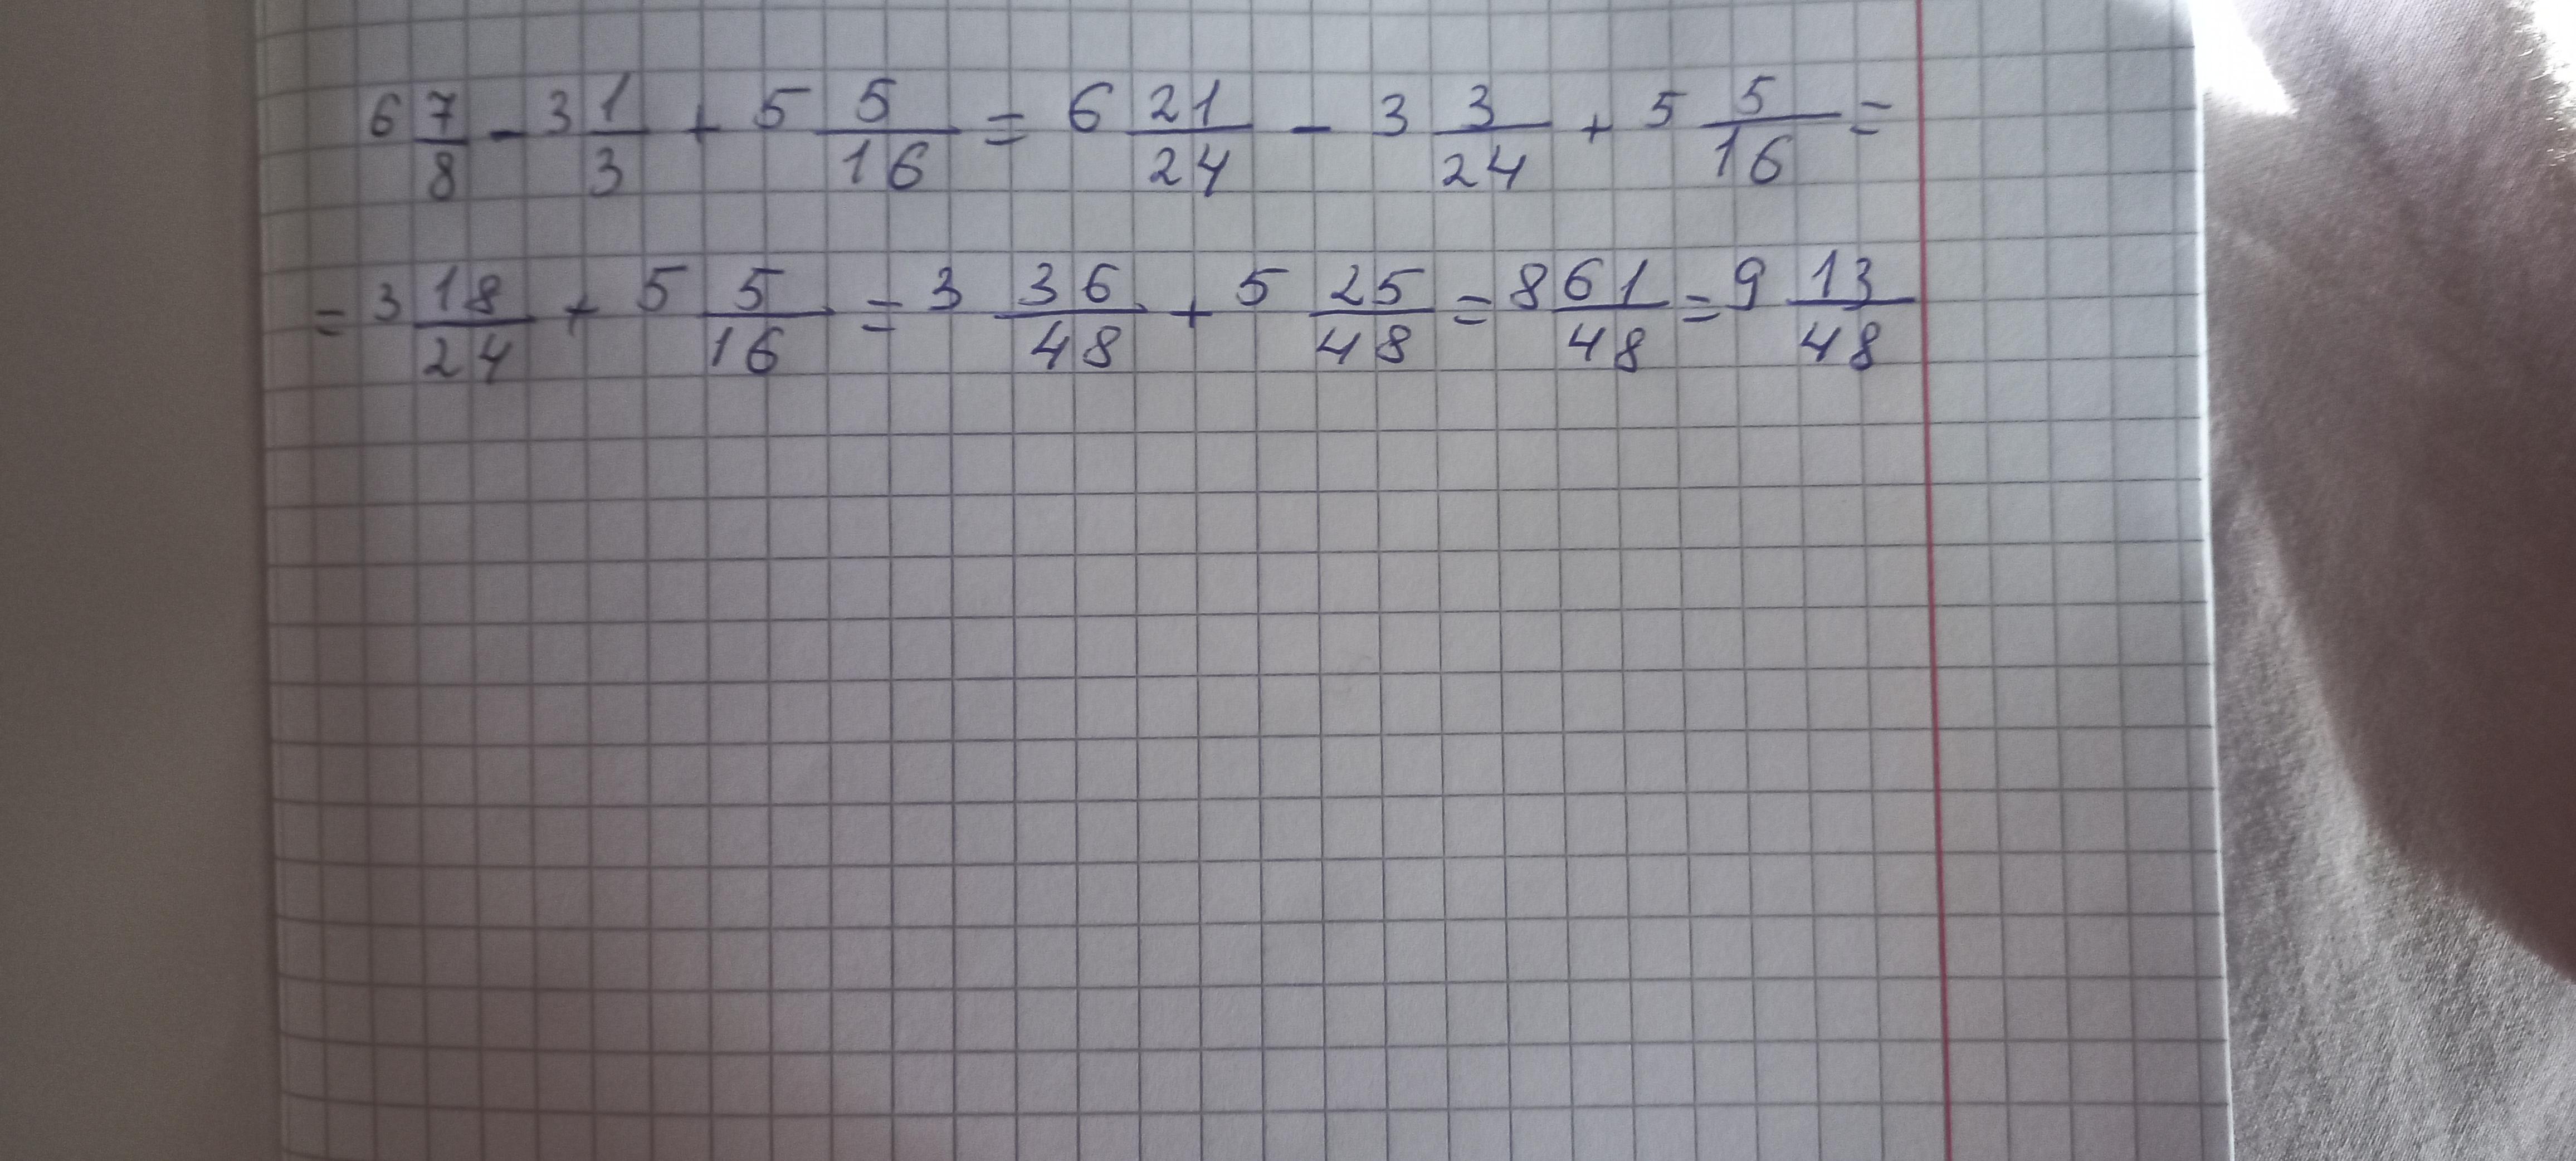 6 7/8 - 3 1/3 + 5 5/16 = 6 21/24 - 3 3/24 + 5 5/16 =
= 3 18/24 + 5 5/16 = 3 36/48 + 5 25/48 = 8 61/48 = 9 13/48